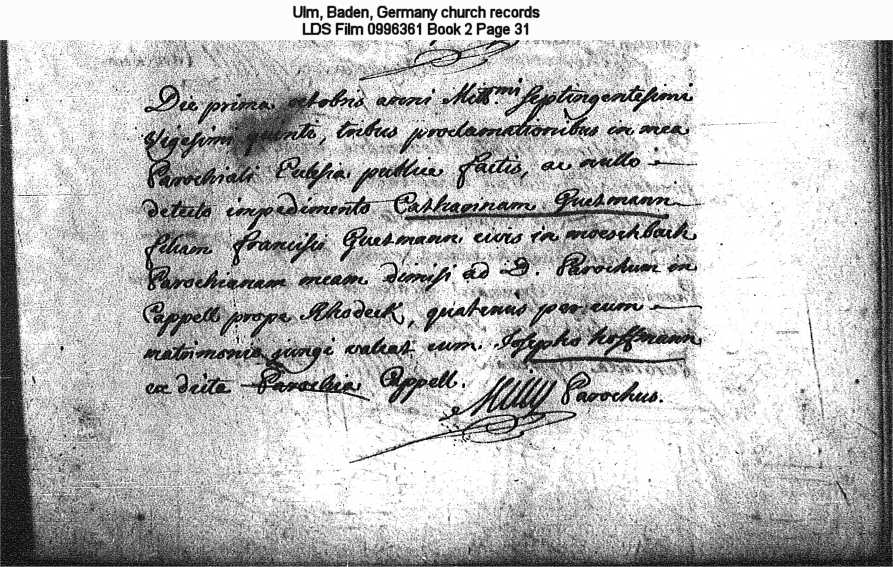 Ulm, Baden, Germany church records
LDS Film 0996361 Book 2 Page 31
Die prima octobris anni Mill.mi septingentesimi
Vigesimi quinti, tribus proclamationibus in mea
Parochiali Eclesia publice factis, ac nullo
detecto impedimento Catharinam Guetmann
filiam francisci Guetmann civis in moeschbach
Parochianam meam dimisi ad D. Parochum in
Cappell prope Rhodeck, quatenus per eum
matrimonio jungi valeat cum Josepho hoffmann
ex dicta Parochia Cappell.
Parochus.